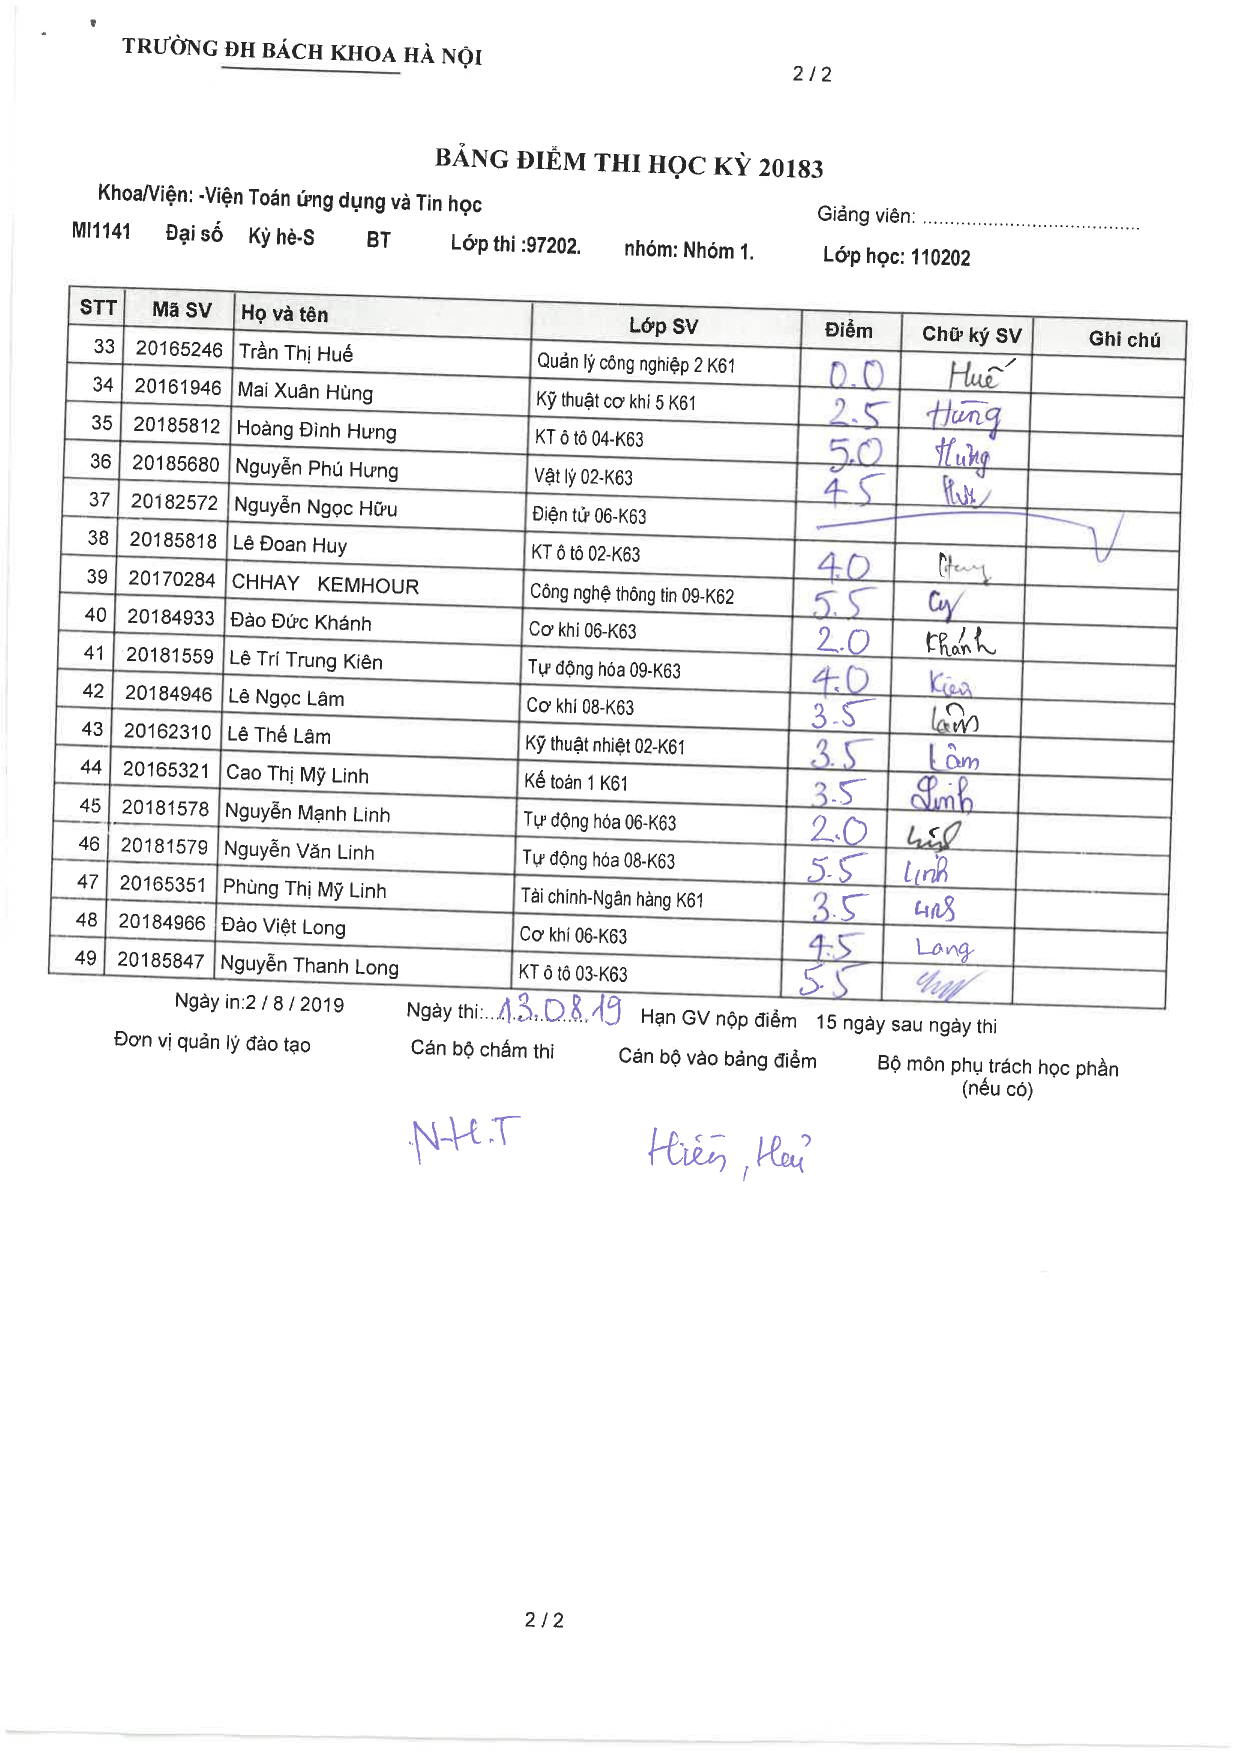 TRƯỜNG ĐH BÁCH KHOA HÀ NỘI
2 / 2
BẢNG ĐIỂM THI HỌC KỲ 20183
Khoa/Viện: -Viện Toán ứng dụng và Tin học Giảng viên: ........................................
MI1141 Đại số Kỳ hè-S BT Lớp thi :97202. nhóm: Nhóm 1. Lớp học: 110202
STT Mã SV Họ và tên Lớp SV Điểm Chữ ký SV Ghi chú
33 20165246 Trần Thị Huế Quản lý công nghiệp 2 K61 0.0 Huế
34 20161946 Mai Xuân Hùng Kỹ thuật cơ khí 5 K61 2.5 Hùng
35 20185812 Hoàng Đình Hưng KT ô tô 04-K63 5.0 Hưng
36 20185680 Nguyễn Phú Hưng Vật lý 02-K63 4.5
37 20182572 Nguyễn Ngọc Hữu Điện tử 06-K63 V
38 20185818 Lê Đoan Huy KT ô tô 02-K63 4.0
39 20170284 CHHAY KEMHOUR Công nghệ thông tin 09-K62 5.5
40 20184933 Đào Đức Khánh Cơ khí 06-K63 2.0 Khánh
41 20181559 Lê Trí Trung Kiên Tự động hóa 09-K63 4.0 Kiên
42 20184946 Lê Ngọc Lâm Cơ khí 08-K63 3.5 Lâm
43 20162310 Lê Thế Lâm Kỹ thuật nhiệt 02-K61 3.5 Lâm
44 20165321 Cao Thị Mỹ Linh Kế toán 1 K61 3.5 Linh
45 20181578 Nguyễn Mạnh Linh Tự động hóa 06-K63 2.0
46 20181579 Nguyễn Văn Linh Tự động hóa 08-K63 5.5 Linh
47 20165351 Phùng Thị Mỹ Linh Tài chính-Ngân hàng K61 3.5
48 20184966 Đào Việt Long Cơ khí 06-K63 4.5 Long
49 20185847 Nguyễn Thanh Long KT ô tô 03-K63 5.5
Ngày in:2 / 8 / 2019 Ngày thi:.13.08.19 Hạn GV nộp điểm 15 ngày sau ngày thi
Đơn vị quản lý đào tạo Cán bộ chấm thi Cán bộ vào bảng điểm Bộ môn phụ trách học phần
(nếu có)
N.H.T Hiền,
2 / 2